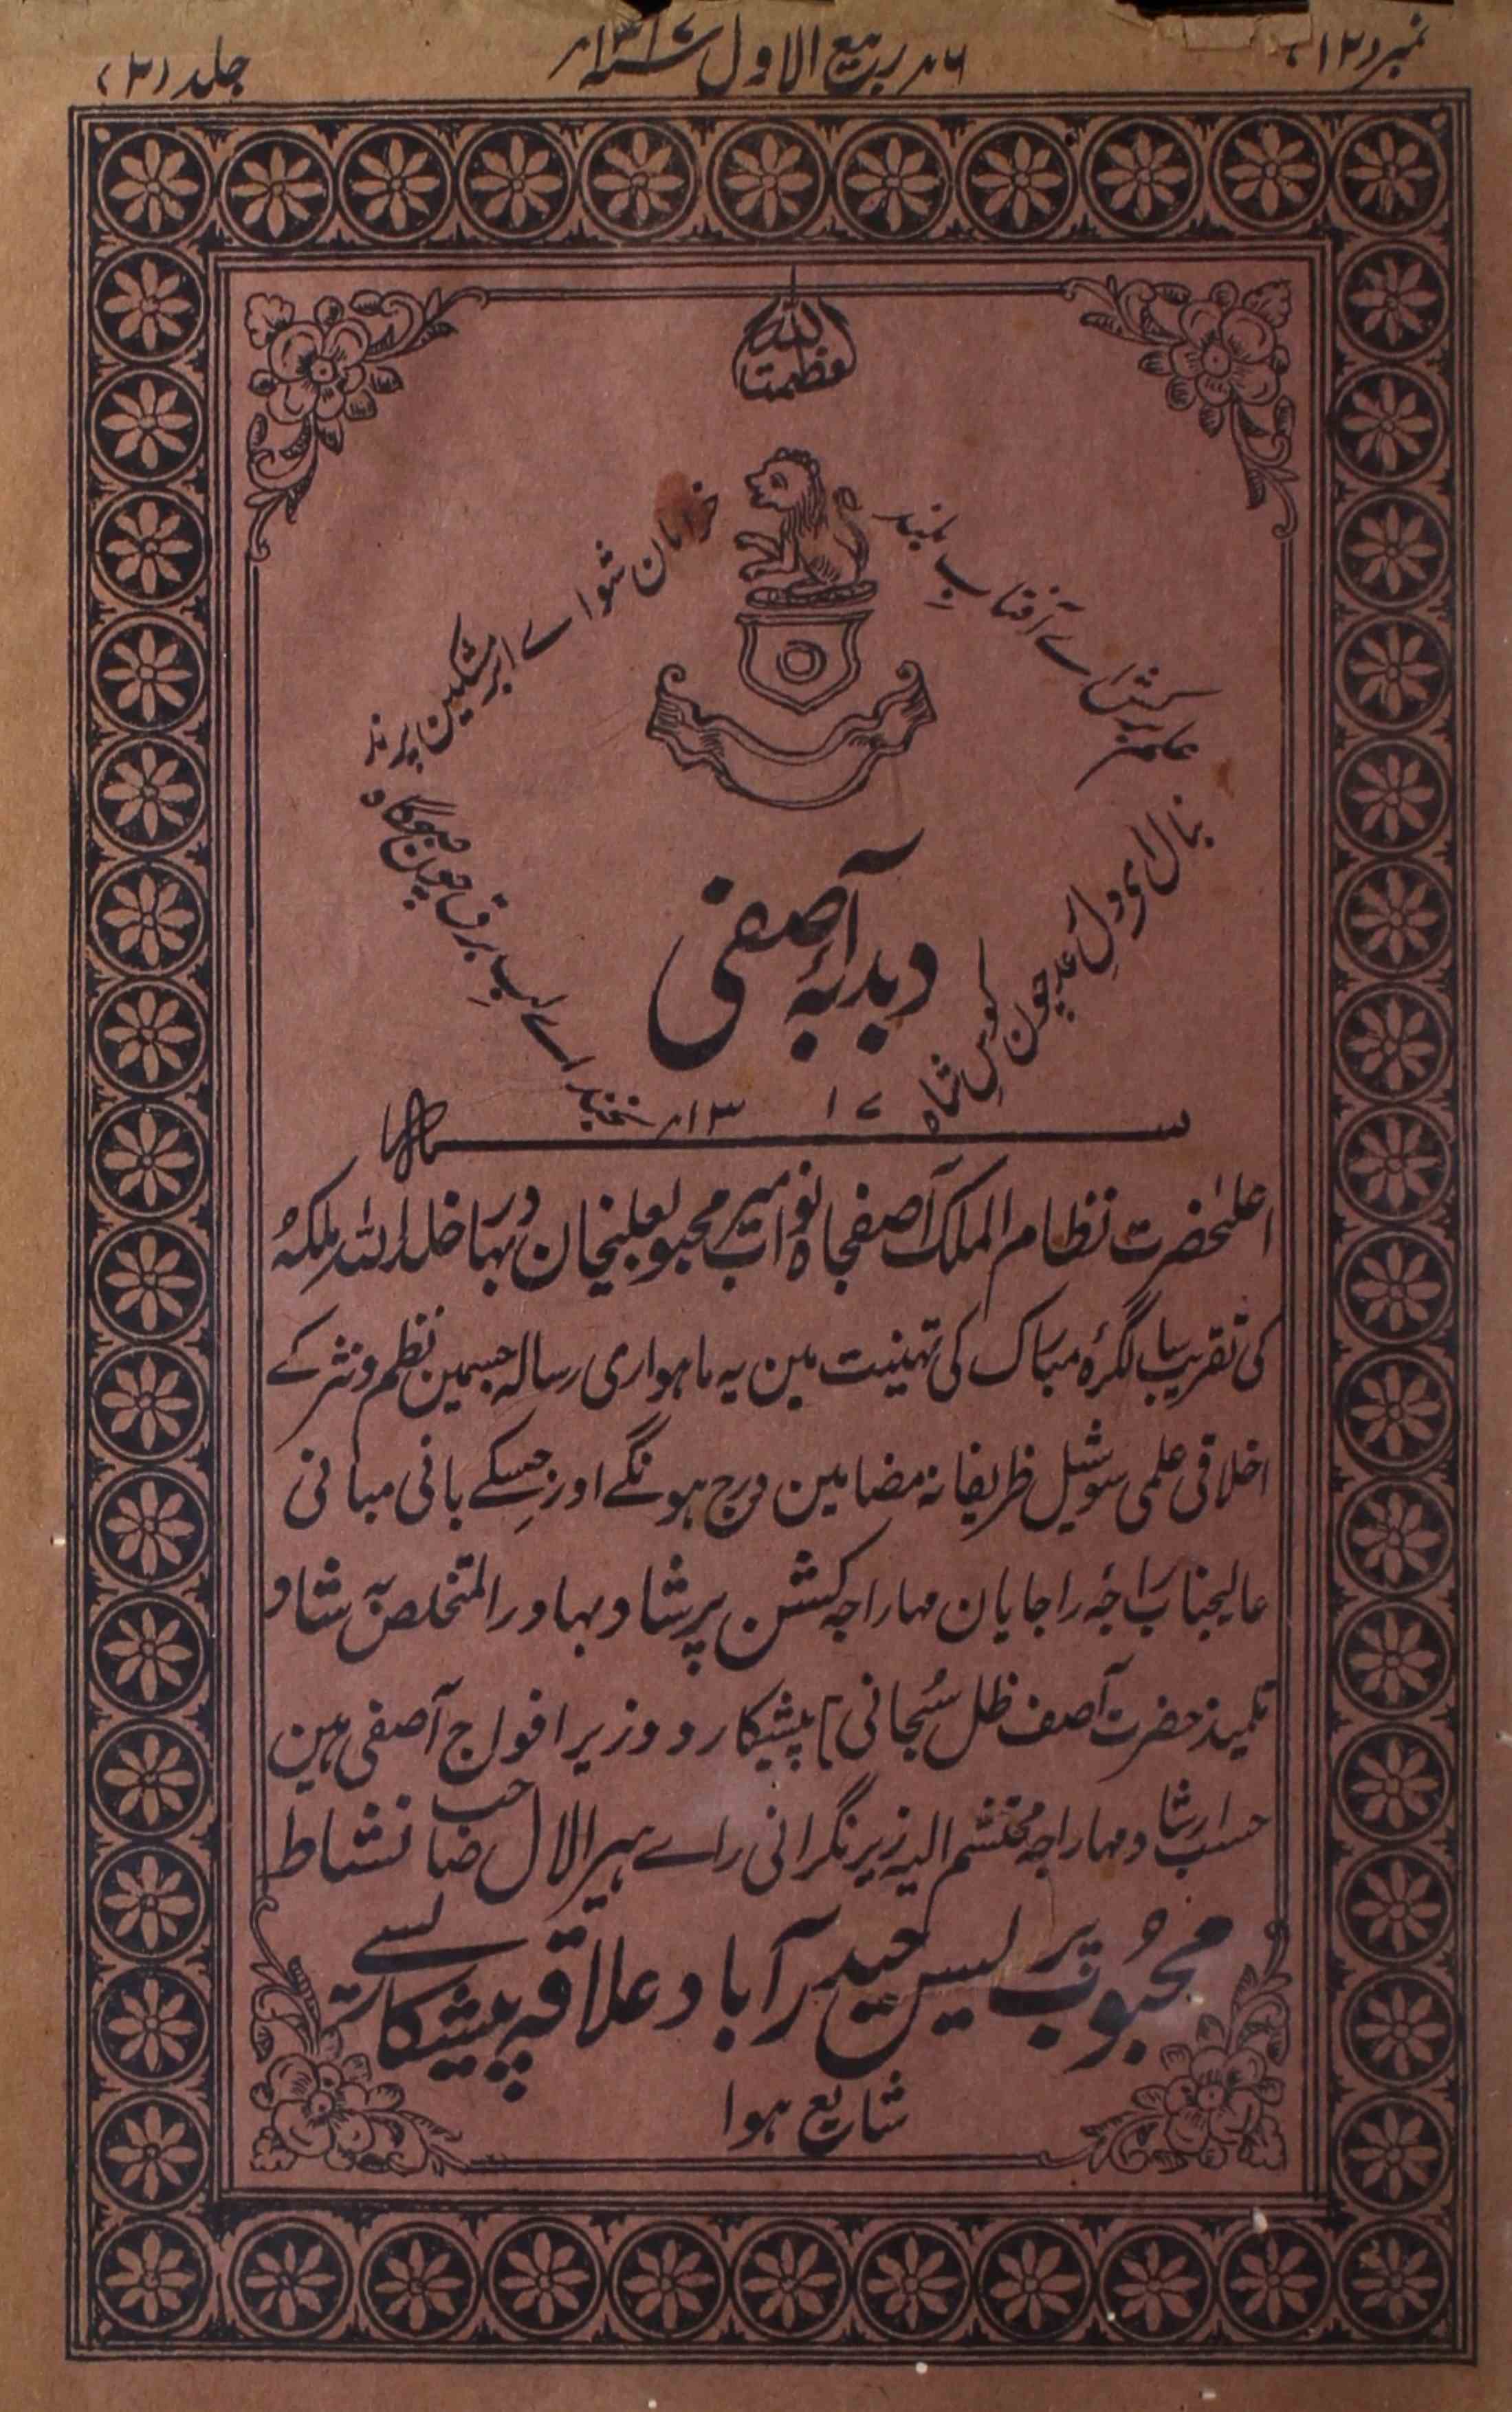 نمبر (۱۲)
۶ ر ربیع الاول سنہ ۱۳۱۷ ھ
جلد (۲)
عظمتہ للہ
علم برکش اے آفتاب بلند
خرامان شو اے ابر مشکین پرند
بنال ای دل رعد چون کوس شاه
بخند اے لب برق چون صبحگاه
دبدبۂ آصفی
۱۳۱۷
اعلیٰحضرت نظام الملک آصفجاہ نواب میر محبوبعلیخان بہادر خلد اللہ ملکہٗ
کی تقریب سالگرۂ مبارک کی تہنیت مین یہ ماہواری رسالہ جسمین نظم و نثر کے
اخلاقی علمی سوشیل ظریفانہ مضامین درج ہونگے اور جسکے بانی مبانی
عالیجناب راجۂ راجایان مہاراجہ کشن پرشاد بہادر المتخلص بہ شاد
تلمیذ حضرت آصف ظل سُبحانی پیشکار و وزیر افواج آصفی ہین
حسب ارشاد مہاراجہ محتشم الیہ زیر نگرانی راے ہیرا لال صاحب نشاط
محبُوب پریس حیدرآباد علاقہ پیشکاری سے
شایع ہوا